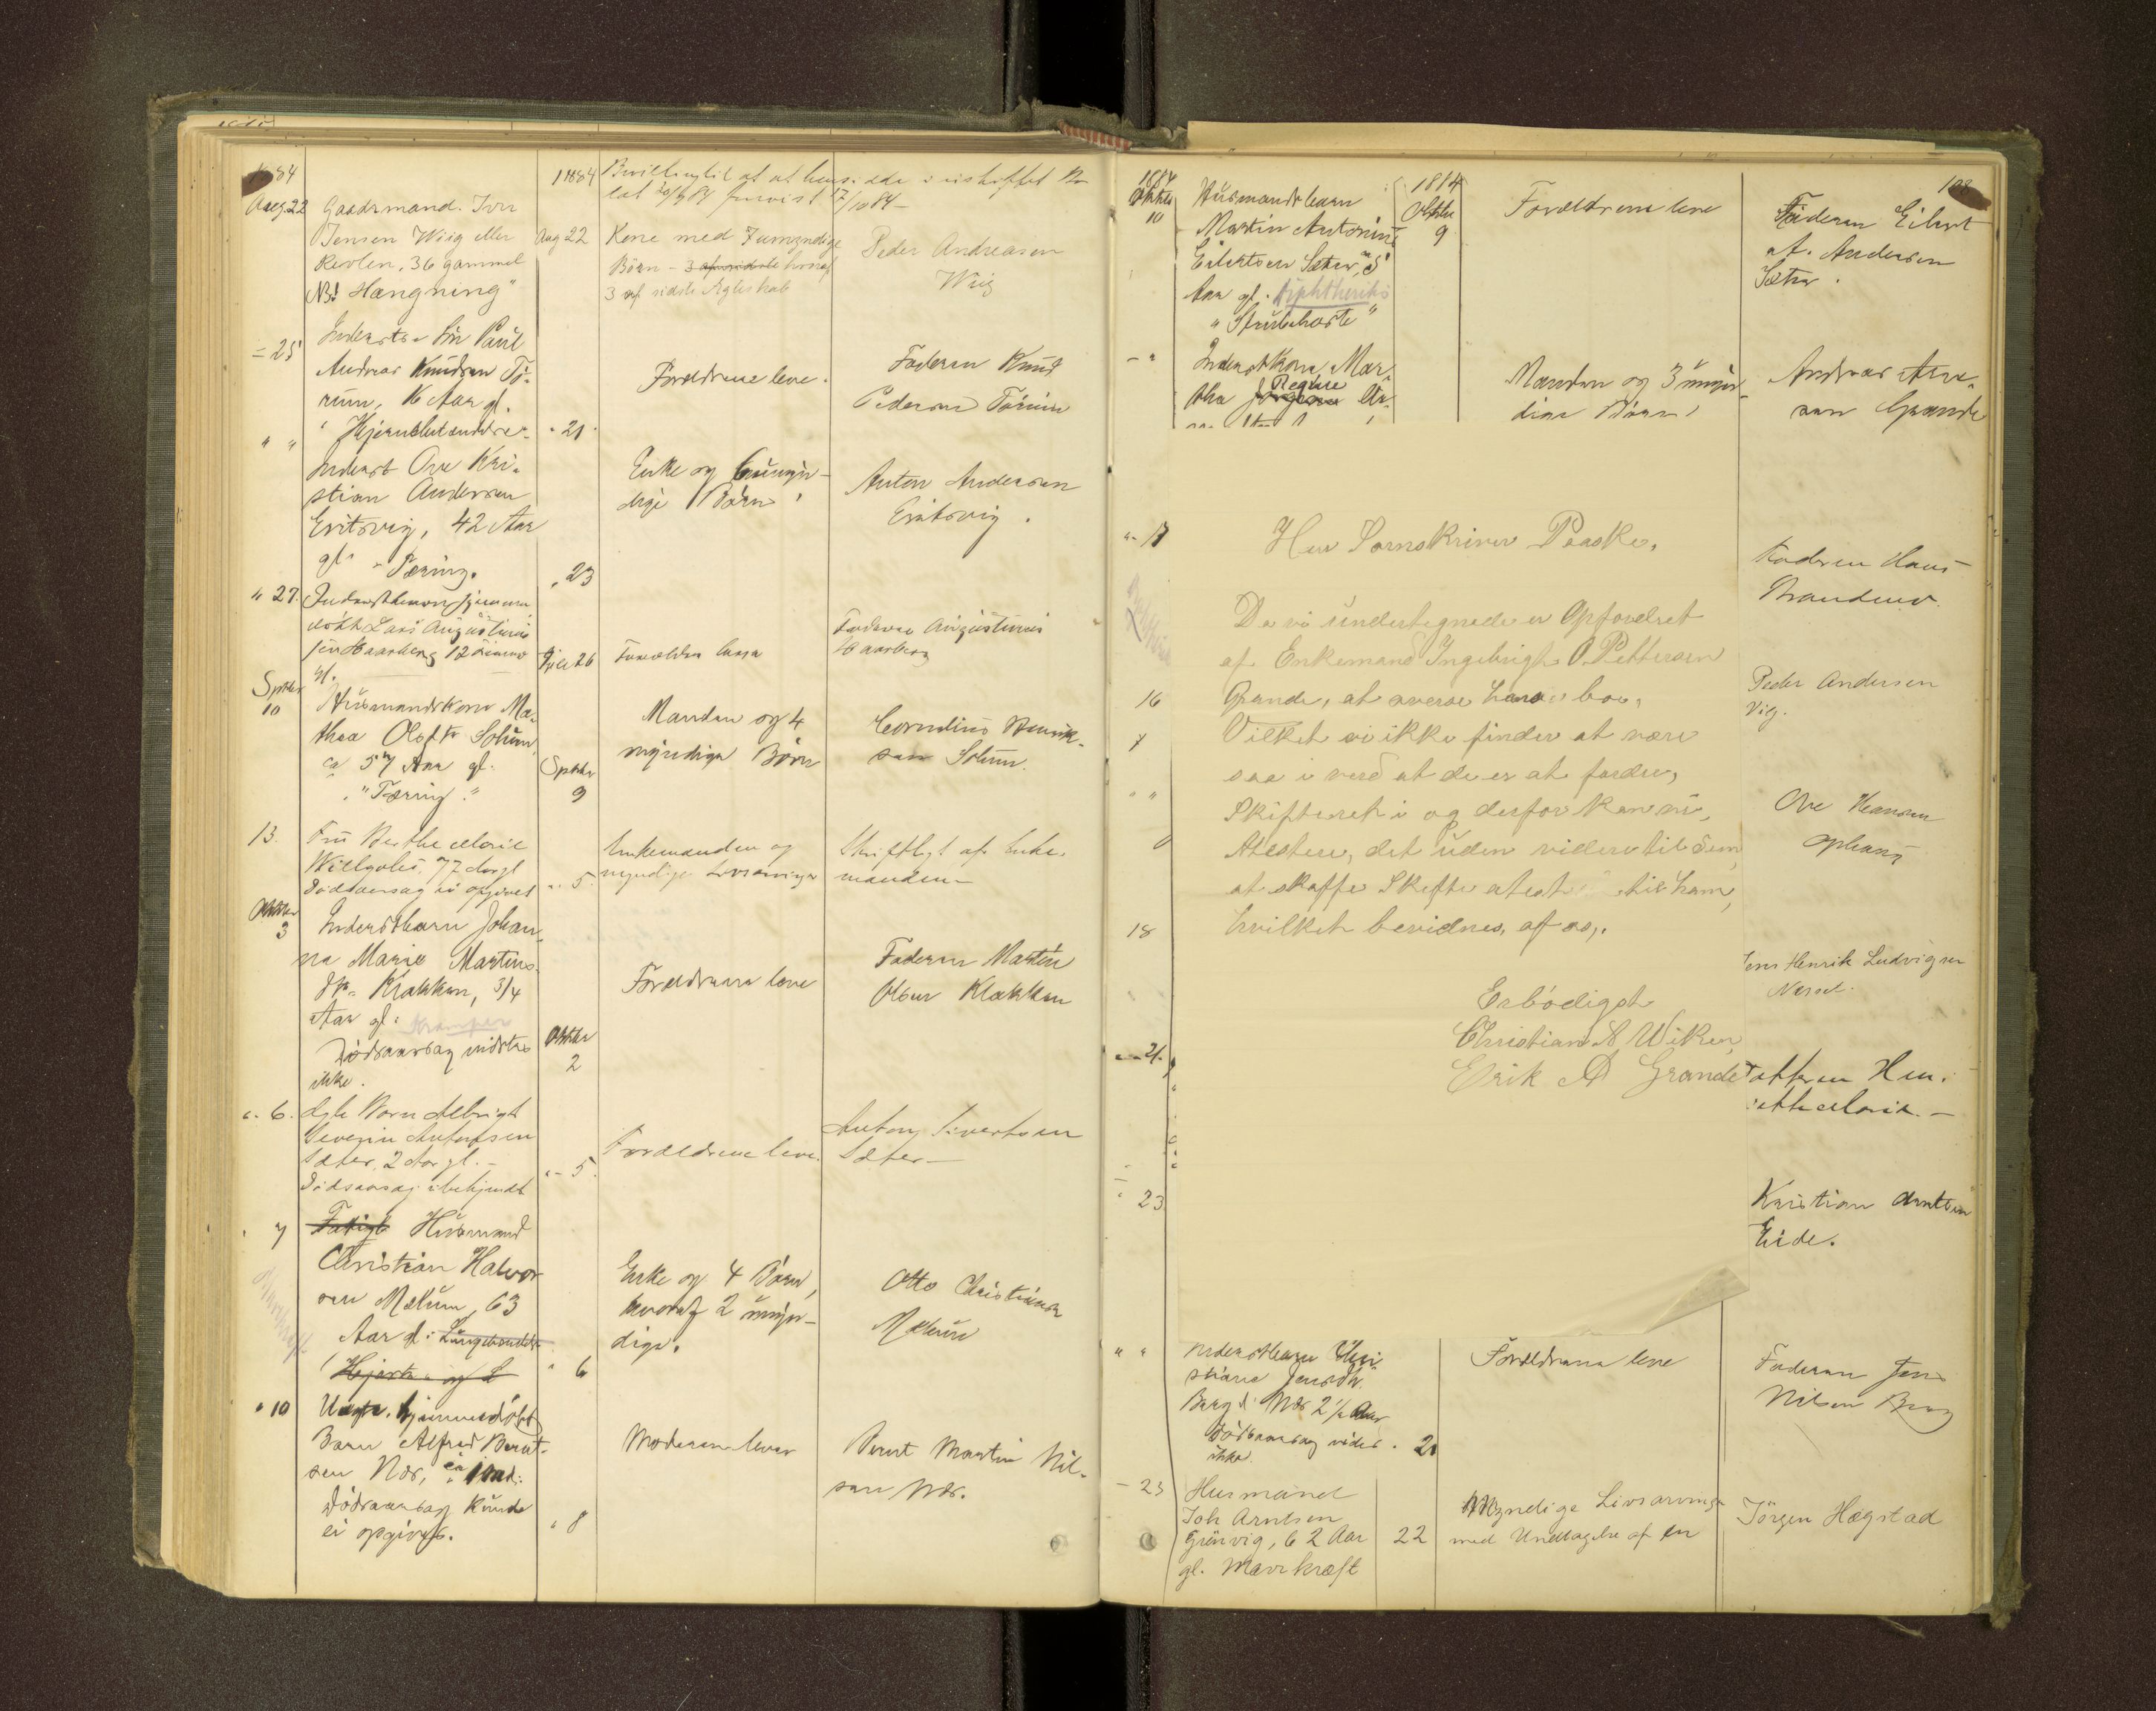 1884
Aug 22 Gaardmand. Iver
Jensen Wiig eller
Reolen, 36 gammel
"Hængning"
1884
Aug 22
Bevilling til at at hens. idde i uskiftet Bo
Kone med 7 umyndige
Børn - 3 hvoraf
3 af sidste Ægteskab
Peder Andreasen
Wiig
- 25 Inderst. Søn Paul
Andreas Knudsen Tø-
rum, 16 Aar gl.
" 21
Forældrene leve.
Faderen Knud
Pedersen Tørum
" " Inderst Ove Kri-
stian Andersen
Evitsvig, 42 Aar
gl. Tæring.
" 23
Enke og 6 umyn-
dige Børn
Anton Andersen
Evitsvig.
" 27. hjemme
døbt Lars Augustinus
Haarberg 12 Timer
gl.
26
Faderen Augustinus
Haarberg
Sptbr
10 Husmandskone Ma-
thea Olsdtr Solum,
ca 57 Aar gl.
"Tæring."
Sptbr
9
Manden og 4
myndige Børn
Cornelius Henrik-
sen Solum.
13. Fru Berthe Marie
77 Aar gl
Dødsaarsag ei opgivet
" 5.
Enkemanden og
myndige Livsarvinger
Skriftligt af Enke-
manden -
Oktbr
3 Inderstbarn Johan-
na Marie Martins-
dtr. Klakken, 3/4
Aar gl. Kramper
Dødsaarsag vidstes
ikke.
Oktbr
2
Forældrene leve
Faderen Martin
Olsen Klakken
" 6. Albrigt
Severin Antonsen
Sæter, 2 Aar gl. -
Dødsaarsag ubekjendt
" - 5.
Forældrene leve.
Anton Sivertsen
Sæter -
" 7 Husmand
Christian Halvor-
sen Melum, 63
Aar gl:
Hjerte- og L
" 6
Enke og 4 Børn,
hvoraf 2 umyn-
dige.
Otto Christiansen
Melum
" 10 Uægte. hjemmedøbt
Barn Alfred Bernt-
sen Nær,
Dødsaarsag kunde
ei opgives.
" 8
Moderen lever
Bernt Martin Nil-
sen Nær.
108
1884
Oktbr
10
Husmandsbarn
Martin Antonius
Eilertsen Sæter, 5
Aar gl. Diphtheritis
"Strubehoste"
1884
Oktbr
9
Forældrene leve
Faderen Eilert
af. Andersen
Sæter.
- " Inderstkone Mar-
tha Regine
Manden og 3 umyn-
dige Børn
Andreas
Grande
" - 17
Herr Sorenskriver Paaske,
Da vi undertegnede er Opfordret
af Enkemand Ingebrigt O Pettersen
Grande, at averse hans boe,
Vilket vi ikke finder at være
saa i verd at de er at forde,
Skifteret i og derfor kan vi,
Atestere, det uden videre til Dem
at skaffe Skifte atest til ham,
hvilket bevidnes, af os,.
Erbødigst
Christian A Wiken
Erik A Grande
Faderen Hans
16
Peder Andersen
Viig.
7
" "
Ove Hansen
Ophaug
18
Jens Henrik Ludvigsen
" - 21.
Datteren Hen-
Marie. -
23
Kristian Arntsen
Eide.
" " Inderstbarn Chri-
stiane Jensdtr.
Berg d. Nær 2 1/2 Aar
Dødsaarsag vides
ikke.
" 21
Forældrene leve
Faderen Jens
Nilsen Berg
- 23 Husmand
Joh Arntsen
Grønvig, 62 Aar
gl. Mavekræft
22
Myndige Livsarvinge
med Undtagelse af en
Jörgen Hægstad